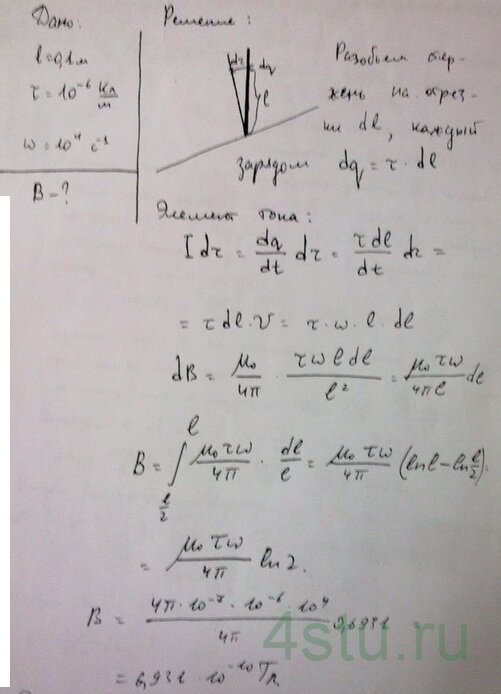 Дано:
l=0,1м
τ = 10⁻⁶ Кл/м
ω = 10⁴ c⁻¹
B - ?
Решение:
dr dq
l
Разобьем стер-
жень на отрез-
ки dl, каждый
зарядом dq = τ · dl
Элемент тока:
I dr = dq/dt dr = τ dl/dt dr =
= τ dl · v = τ · ω · l · dl
dB = μ₀/4π · τ ω l dl/l² = μ₀ τ ω/4π l dl
B = ∫_{l/2}^{l} μ₀ τ ω/4π · dl/l = μ₀ τ ω/4π (ln l - ln l/2) =
= μ₀ τ ω/4π ln 2.
B = 4π · 10⁻⁷ · 10⁻⁶ · 10⁴/4π 0,6931 =
= 6,931 · 10⁻¹⁰ Тл
4stu.ru